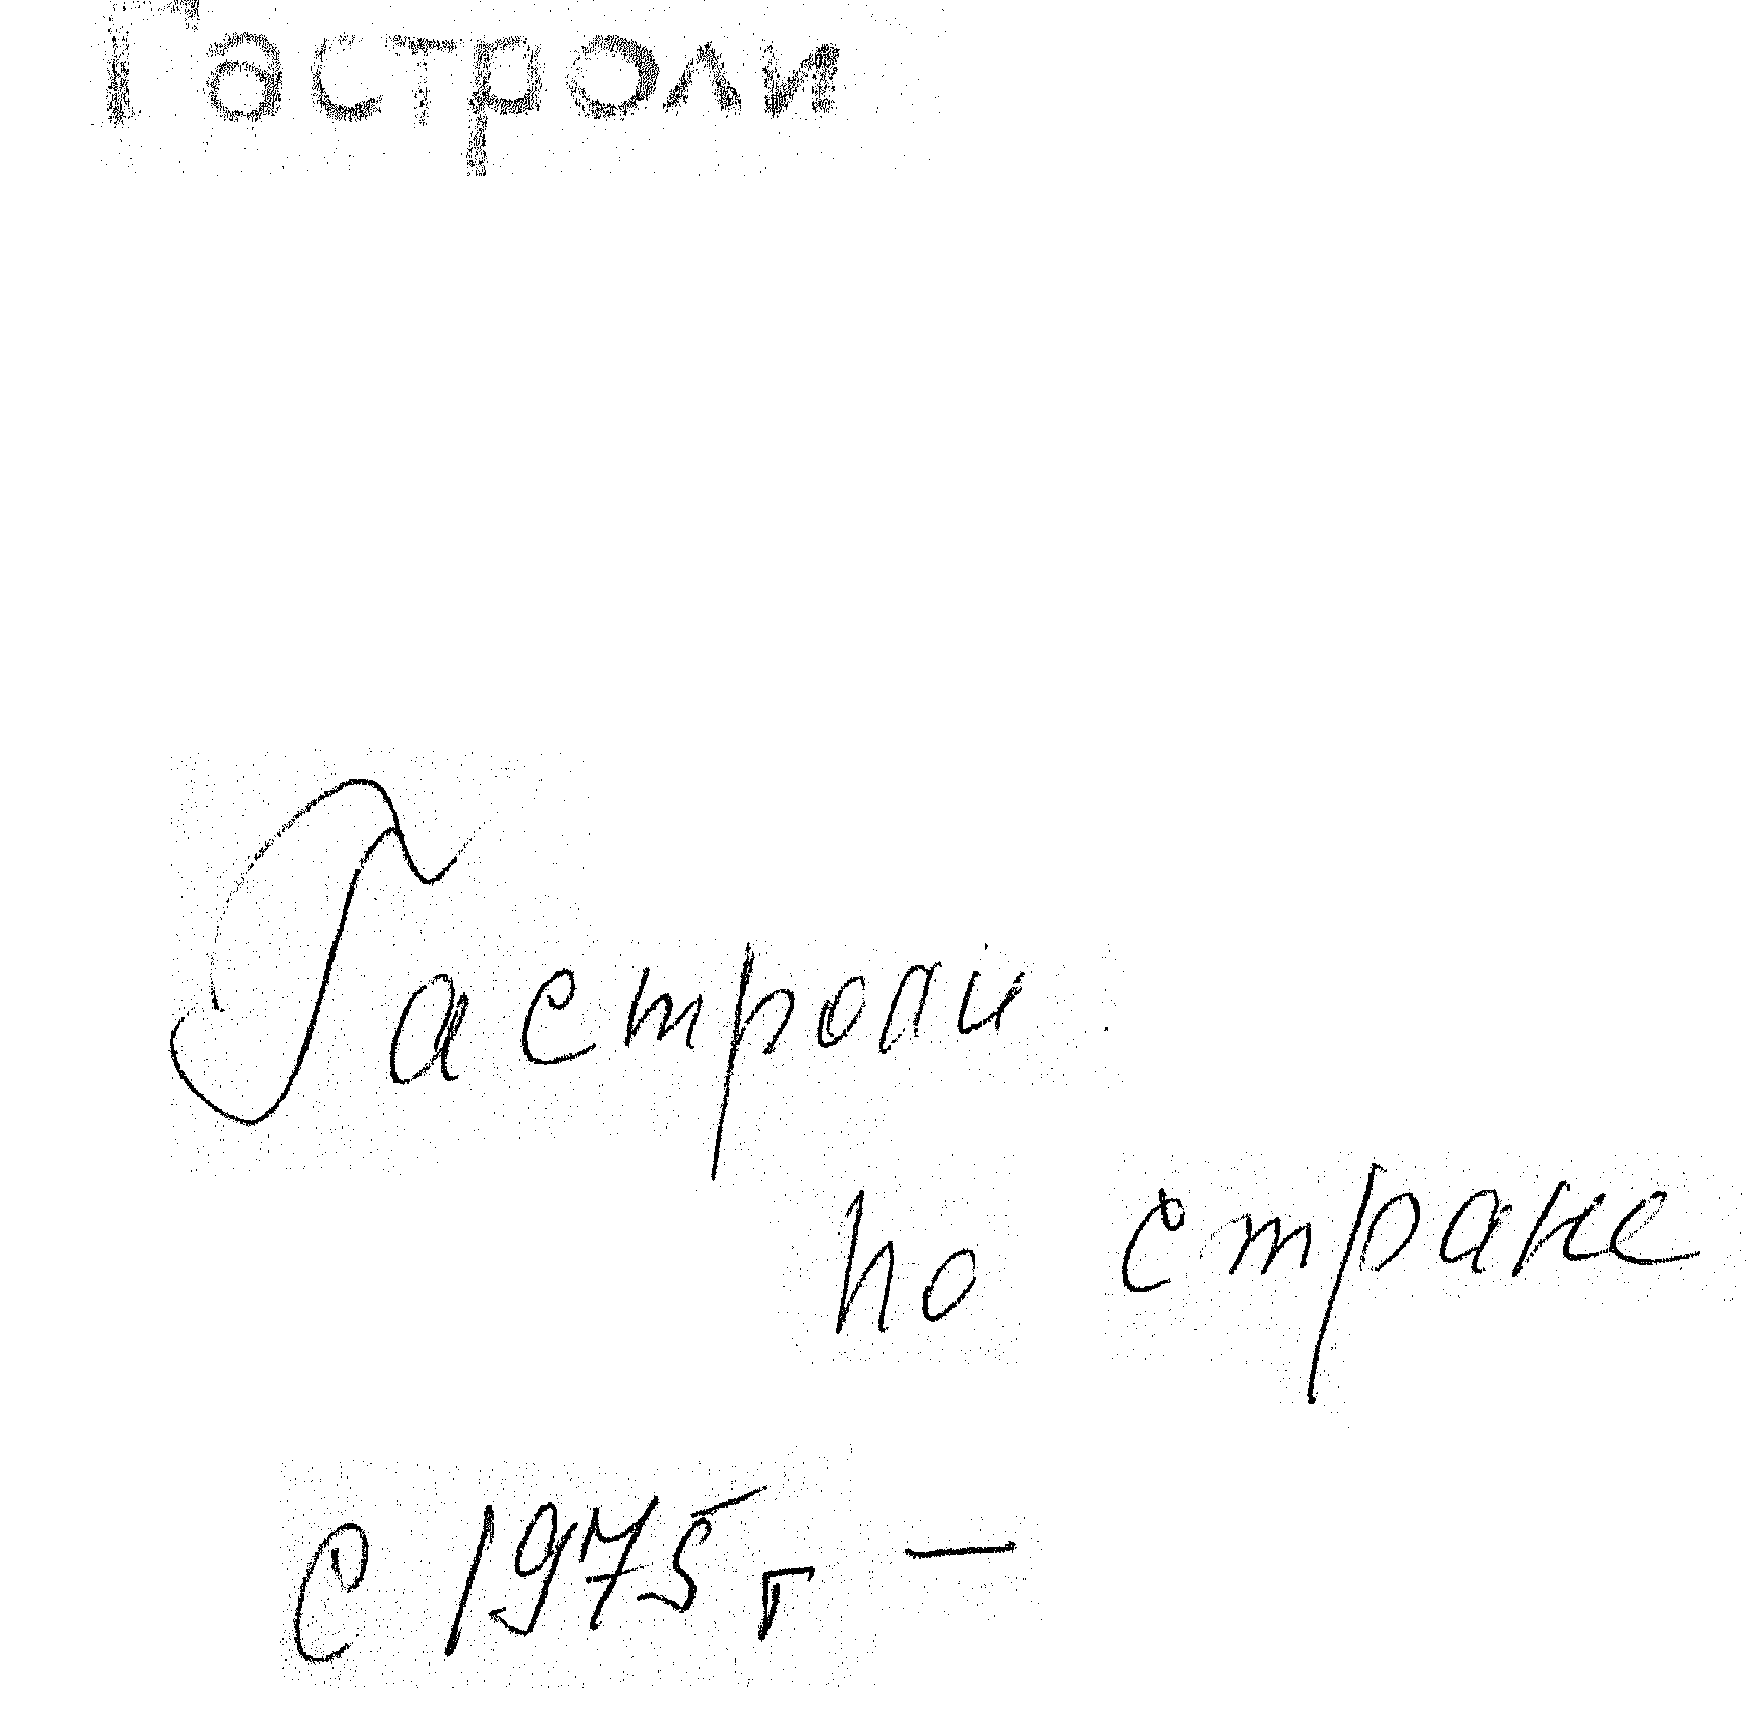 Гастроли
Гастроли
по стране
С 1975 г —